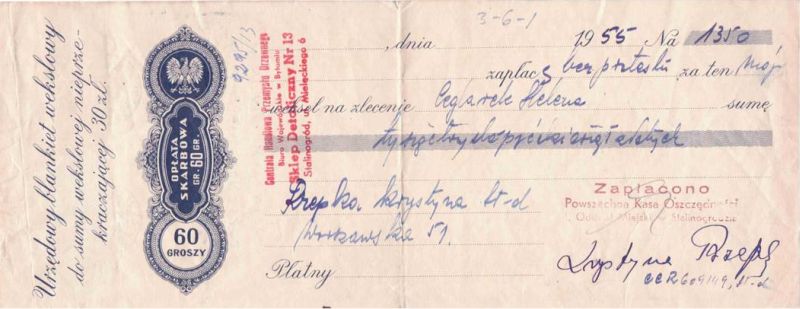 Urzędowy blankiet wekslowy
do sumy wekslowej nieprze-
kraczającej 30 zł.
OPŁATA
SKARBOWA
GR. 60 GR.
60
GROSZY
9295/13
Centrala Handlowa Przemysłu Drzewnego
Biuro Wojewódzkie w Bytomiu
Sklep Detaliczny Nr 13
Stalinogród, ul. Mieleckiego 6
3-6-1
, dnia 1955 Na 1350
zapłacę bez protestu za ten mój
weksel na zlecenie Cegarek Helena sumę
tysiąc trzysta pięćdziesiąt złotych
Rzepka Krystyna St-d
Warszawska 51.
Płatny
Zapłacono
Powszechna Kasa Oszczędności
Oddział Miejski w Stalinogrodzie
Krystyna Rzepk